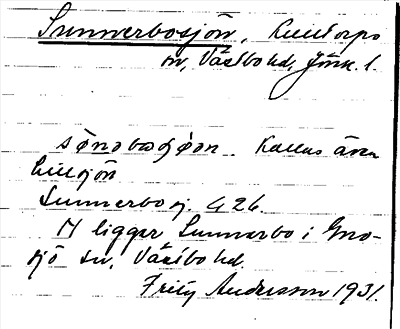 Sunnerbosjön, Kulltorps
sn, Västbo hd, Jönk. l.
sønəbosjøən. Kallas även
Lillsjön
Sunnerbosj. G 26.
N ligger Sunnerbo i Gno-
sjö sn, Västbo hd.
Fritz Andersson 1931.